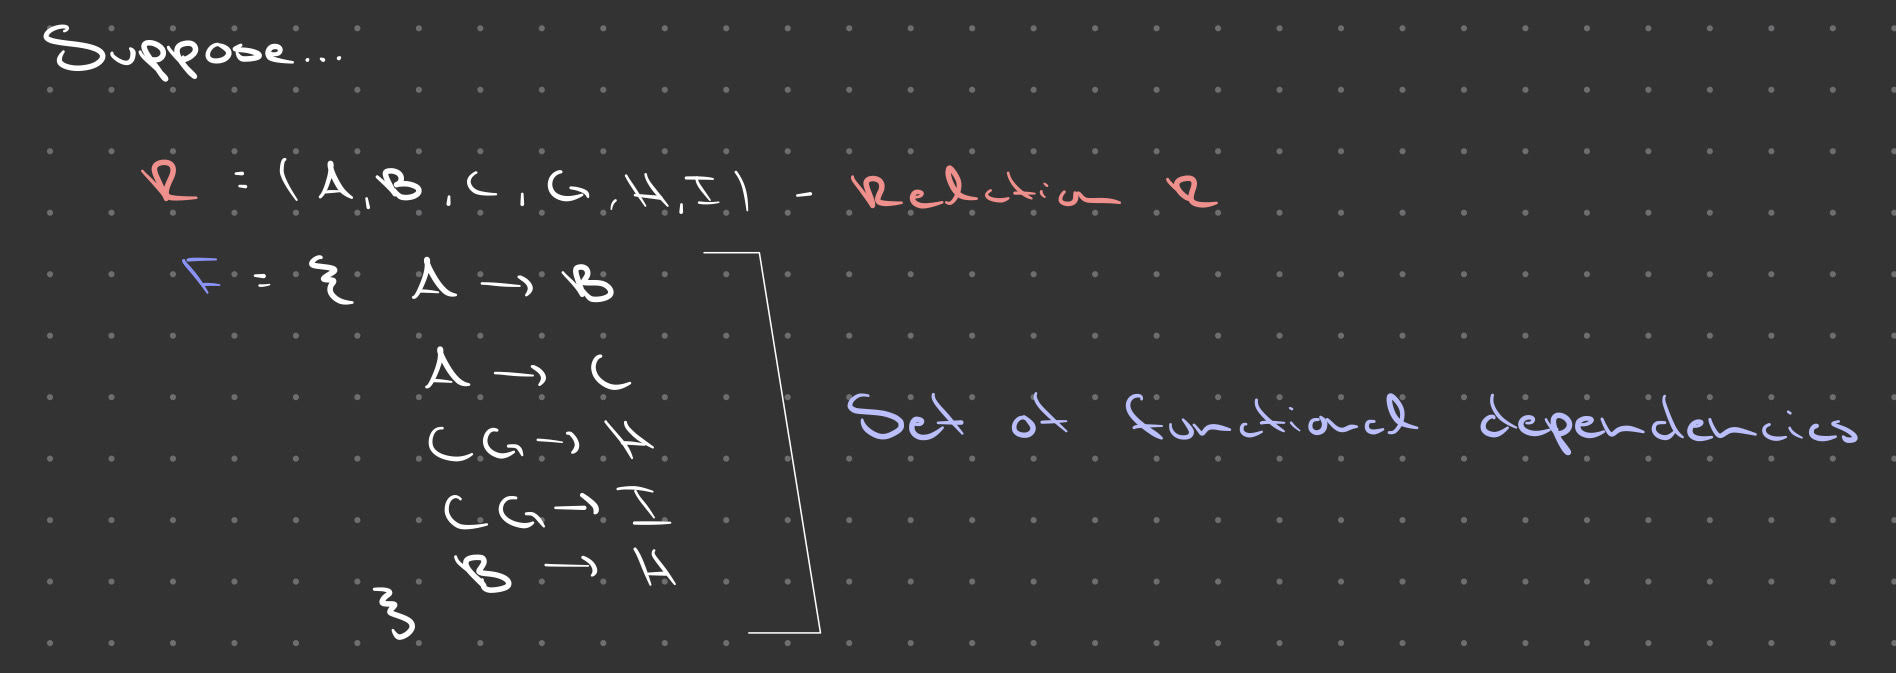 Suppose...
R = (A, B, C, G, H, I) - Relation R
F = { A → B
A → C
CG → H
CG → I
B → H
}
Set of functional dependencies